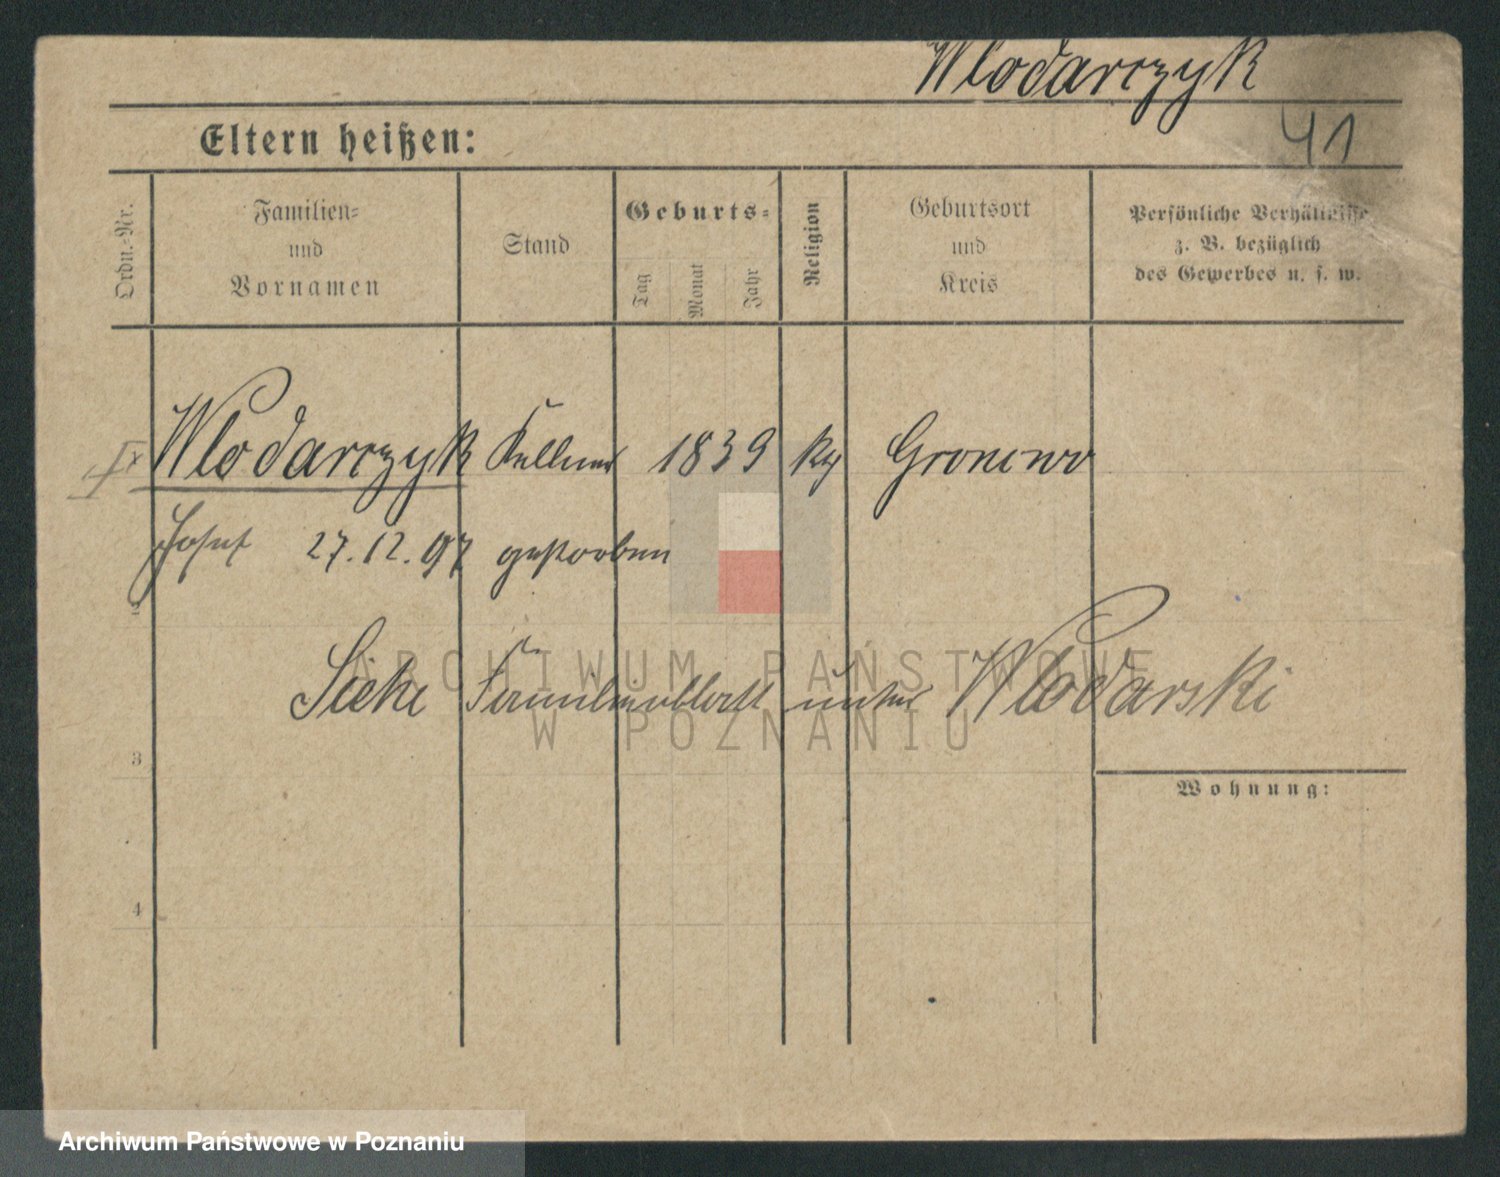 Wlodarczyk
41
Eltern heißen:
Ordn.-Nr.
Familien-
und
Vornamen
Stand
Geburts-
Tag
Monat
Jahr
Religion
Geburtsort
und
Kreis
Persönliche Verhältnisse
z. B. bezüglich
des Gewerbes u. s. w.
Wlodarczyk Kellner 1839 Gronowo
Josef 27.12.97 gestorben
2
Siehe Familienblatt unter Wlodarski
ARCHIWUM PAŃSTWOWE
W POZNANIU
3
Wohnung:
4
Archiwum Państwowe w Poznaniu